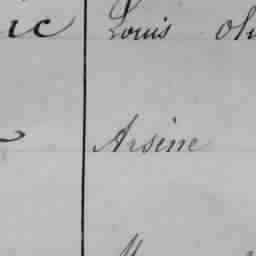 ic Louis
Arsène